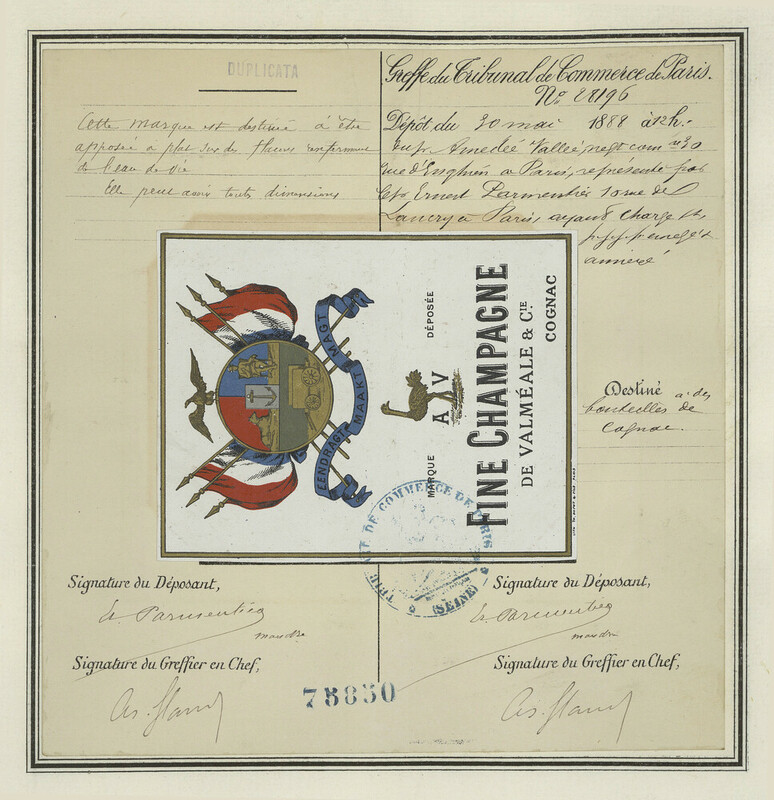 DUPLICATA
Cette marque est destinée à être
apposée à plat sur des flacons renfermant
de l'eau de vie
Elle peut avoir toute dimensions
Greffe du Tribunal de Commerce de Paris.
No 28196
Dépôt du 30 mai 1888 à 12h.
Amédée Vallée, negt com 30
rue d'Enghien à Paris, représenté par
Ernest Parmentier 10 rue de
Lancry à Paris, ayant charge
annexé
EENDRAGT MAAKT MAGT
MARQUE A V DÉPOSÉE
FINE CHAMPAGNE
DE VALMÉALE & CIE
COGNAC
Destiné à des
bouteilles de
Cognac.
TRIBUNAL DE COMMERCE DE PARIS
(SEINE)
Signature du Déposant,
E. Parmentier
Signature du Greffier en Chef,
Signature du Déposant,
E. Parmentier
Signature du Greffier en Chef,
75830